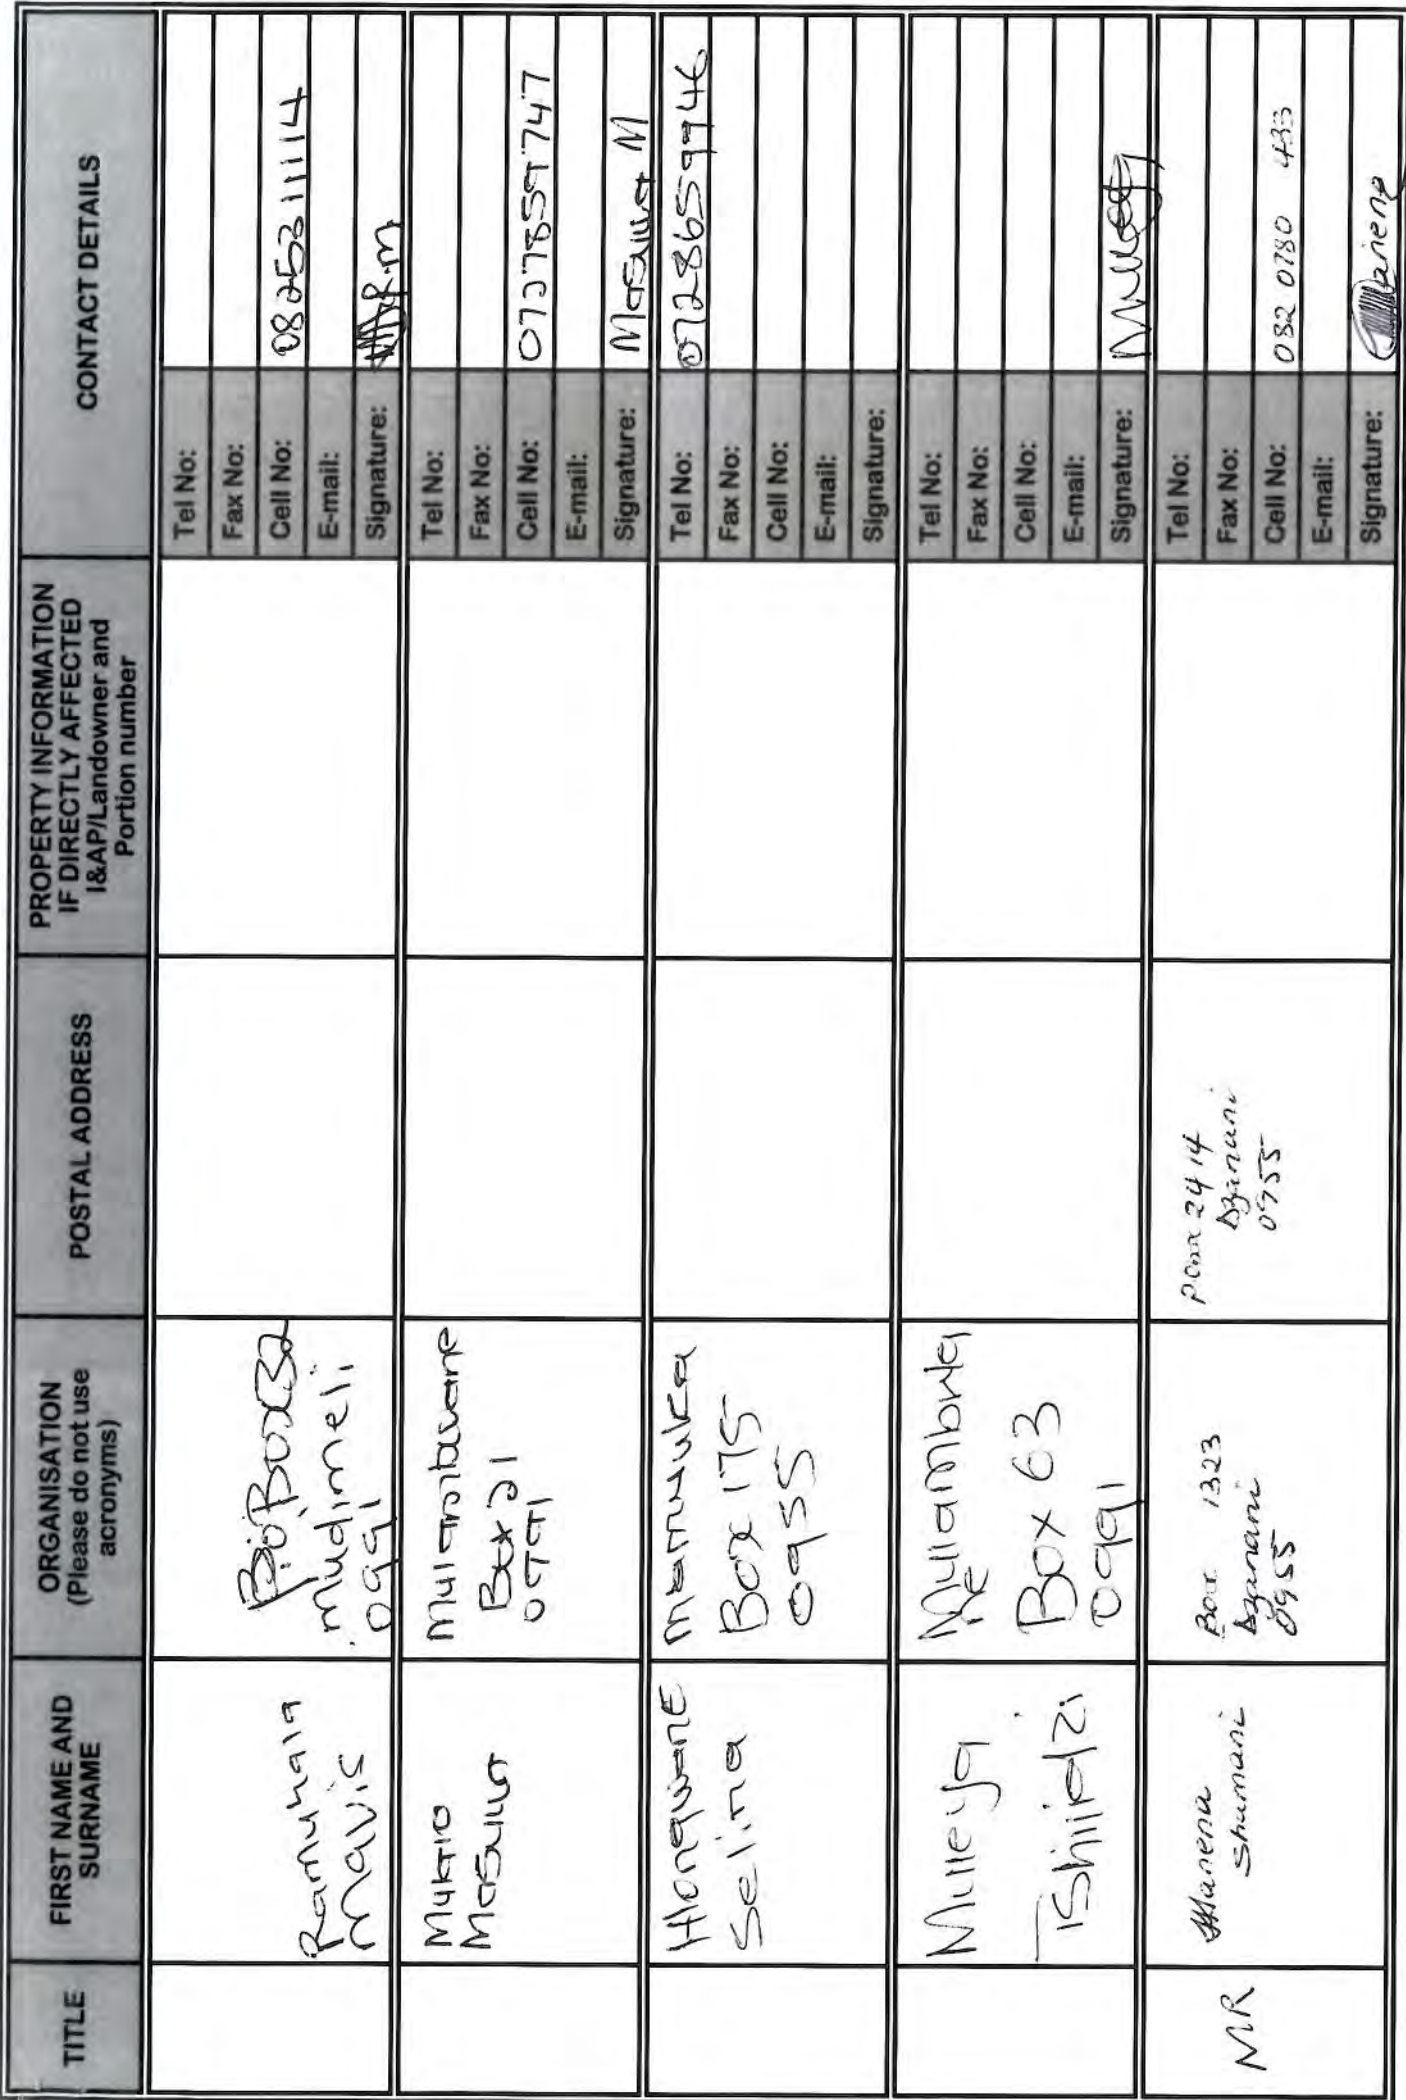 TITLE
FIRST NAME AND
SURNAME
ORGANISATION
(Please do not use
acronyms)
POSTAL ADDRESS
PROPERTY INFORMATION
IF DIRECTLY AFFECTED
I&AP/Landowner and
Portion number
CONTACT DETAILS
Mavis
Box 32
Mudimeli
0991
Tel No:
Fax No:
Cell No: 0825311114
E-mail:
Signature:
Box 21
0991
Tel No:
Fax No:
Cell No:
E-mail:
Signature:
Hlongwane
Selina
Mamuhuka
Box 175
0955
Tel No: 0728659946
Fax No:
Cell No:
E-mail:
Signature:
Muleya
Tshiidzi
Box 63
0991
Tel No:
Fax No:
Cell No:
E-mail:
Signature:
MR
Manena
Shumani
Box 1323
Dzanani
0955
P.O Box 2414
Dzanani
0955
Tel No:
Fax No:
Cell No: 082 0780 433
E-mail:
Signature: Manena